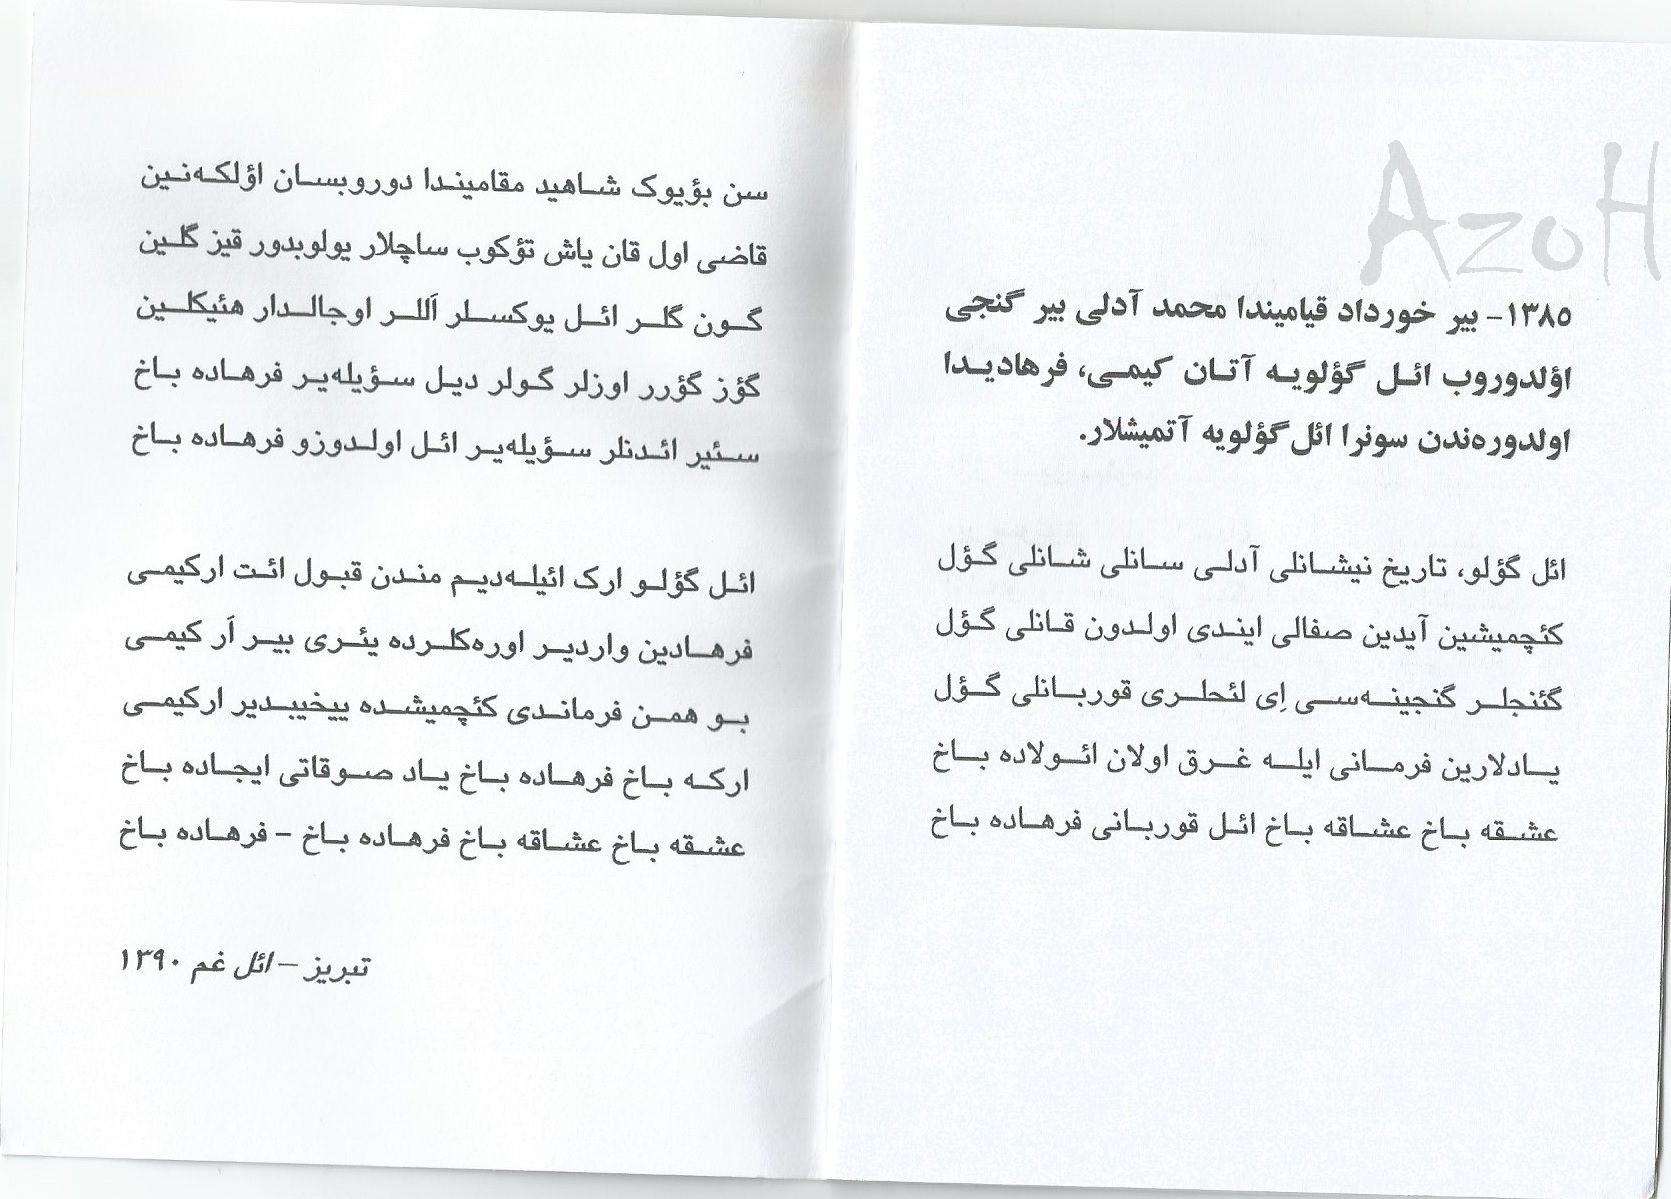 AzoH
۱۳۸۵- بیر خورداد قیامیندا محمد آدلی بیر گنجی
اؤلدوروب ائل گؤلویه آتان کیمی، فرهادیدا
اولدوره‌ندن سونرا ائل گؤلویه آتمیشلار.
ائل گؤلو، تاریخ نیشانلی آدلی سانلی شانلی گؤل
کئچمیشین آیدین صفالی ایندی اولدون قانلی گؤل
گئنجلر گنجینه‌سی اِی لئحلری قوربانلی گؤل
یادلارین فرمانی ایله غرق اولان ائولاده باخ
عشقه باخ عشاقه باخ ائل قوربانی فرهاده باخ
سن بؤیوک شاهید مقامیندا دوروبسان اؤلکه‌نین
قاضی اول قان یاش تؤکوب ساچلار یولوبدور قیز گلین
گون گلر ائل یوکسلر اَللر اوجالدار هئیکلین
گؤز گؤرر اوزلر گولر دیل سؤیله‌یر فرهاده باخ
سئیر ائدنلر سؤیله‌یر ائل اولدوزو فرهاده باخ
ائل گؤلو ارک ائیله‌دیم مندن قبول ائت ارکیمی
فرهادین واردیر اوره‌کلرده یئری بیر اَر کیمی
بو همن فرماندی کئچمیشده ییخیبدیر ارکیمی
ارکه باخ فرهاده باخ یاد صوقاتی ایجاده باخ
عشقه باخ عشاقه باخ فرهاده باخ - فرهاده باخ
تبریز – ائل غم ۱۳۹۰